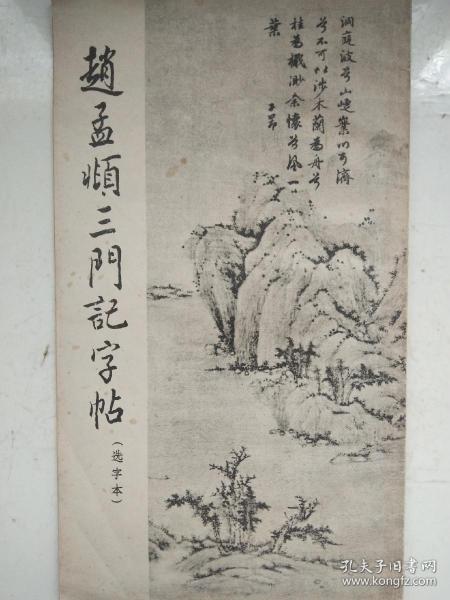 洞庭波兮山崨嶪川可濟
兮不可以涉木蘭為舟兮
桂為檝渺余懷兮風一
葉
子昂
趙孟頫三門記字帖
(选字本)
孔夫子旧书网
www.kongfz.com